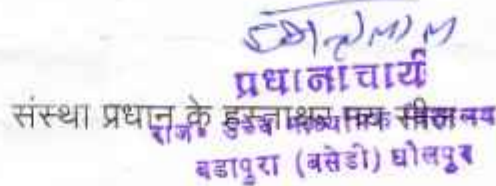 प्रधानाचार्य
संस्था प्रधान के हस्ताक्षर मय सील
राज॰ उच्च माध्यमिक विद्यालय
बडापुरा (बसेडी) धौलपुर